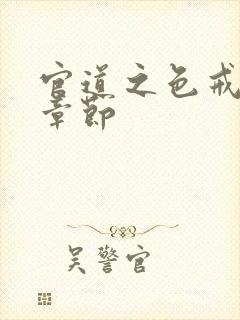 官道之色戒
章节
吴警官